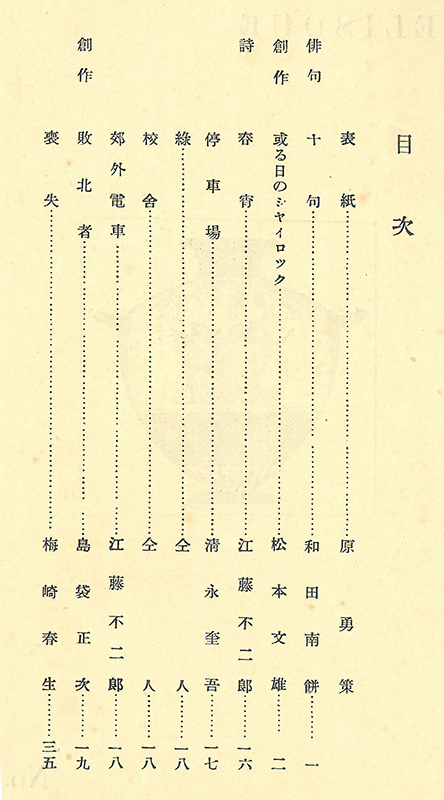 目次
表紙……原勇策
俳句 十句……和田南餅……一
創作 或る日のシヤイロツク……松本文雄……二
詩 春宵……江藤不二郎……一六
停車場……淸永奎吾……一七
綠……仝人……一八
校舍……仝人……一八
郊外電車……江藤不二郎……一八
創作 敗北者……島袋正次……一九
喪失……梅崎春生……三五